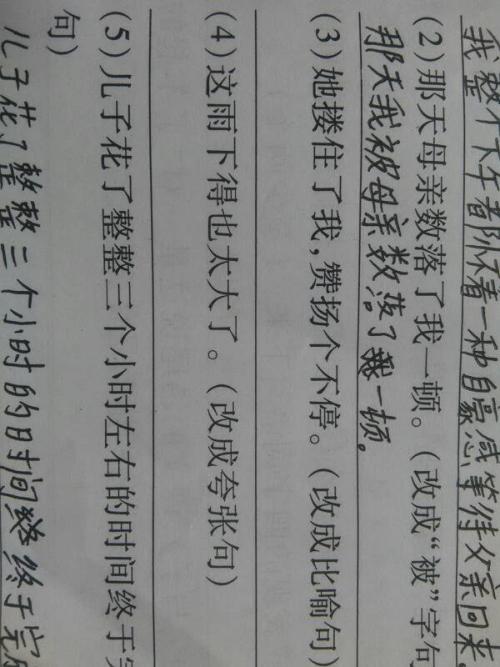 我整个下午都怀着一种自豪感等待父亲回来。
(2)那天母亲数落了我一顿。(改成“被”字句
那天我被母亲数落了一顿。
(3)她搂住了我,赞扬个不停。(改成比喻句)
(4)这雨下得也太大了。(改成夸张句)
(5)儿子花了整整三个小时左右的时间终于
句)
儿子花了整整三个小时的时间终终于完